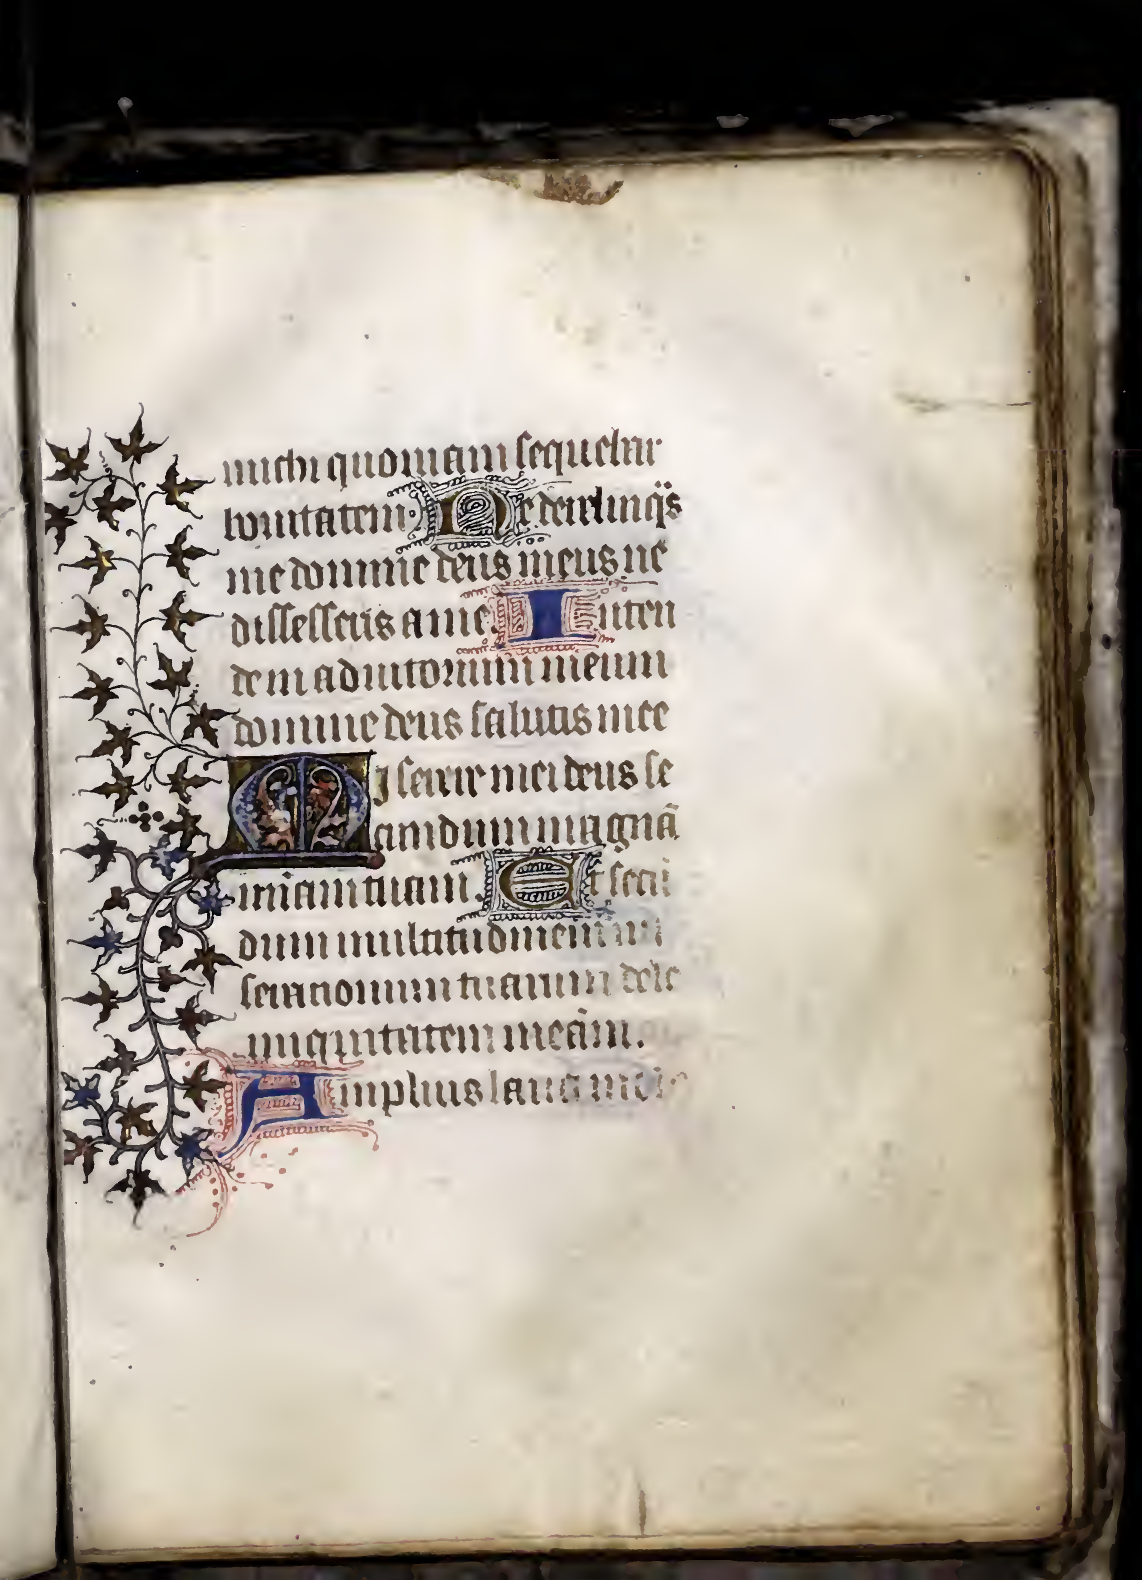 michi quoniam sequebar
bonitatem. Ne derelinq̃s
me domine deus meus ne
discesseris a me. Inten
de in adiutorium meum
domine deus salutis mee
Miserere mei deus se
cundum magnã
mi̅am tuam. Et secũ
dum multitudinem mi
seracionum tuarum dele
iniquitatem meam.
Amplius laua me